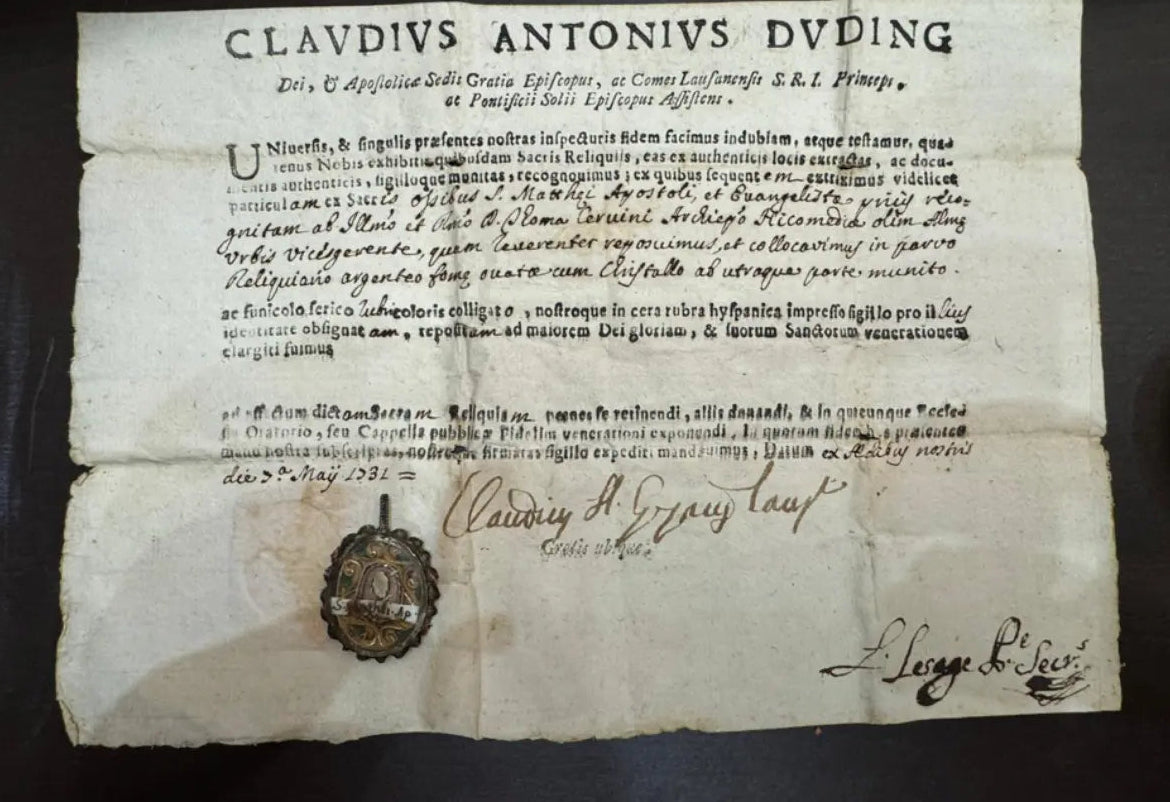 CLAVDIVS ANTONIVS DVDING
Dei, & Apostolicæ Sedis Gratia Episcopus, ac Comes Lausanensis S. R. I. Princeps,
ac Pontificii Solii Episcopus Assistens.
UNiversis, & singulis præsentes nostras inspecturis fidem facimus indubiam, atque testamur, qua-
tenus Nobis exhibitis quibusdam Sacris Reliquiis, eas ex authenticis locis extractas, ac docu-
mentis authenticis, sigilloque munitas, recognovimus; ex quibus sequentem extraximus videlicet
particulam ex Sacris ossibus S. Matthei Apostoli, et Evangelistæ prius reco-
gnitam ab Illmo et Rmo D. Thoma Cervini Archiepo Nicomediæ olim Almæ
Vrbis vicesgerente, quem reverenter reposuimus, et collocavimus in parvo
Reliquiario argenteo formæ ovatæ cum Christallo ab utraque parte munito.
ac funicolo serico rubri coloris colligato, nostroque in cera rubra hyspanica impresso sigillo pro illius
identitate obsignatam, repositam ad maiorem Dei gloriam, & suorum Sanctorum venerationem
elargiti fuimus
ad effectum dictam Sacram Reliquiam penes se retinendi, aliis donandi, & in quicunque Ecclesi
Oratorio, seu Cappella pubblicæ Fidelium venerationi exponendi, In quorum fidem has præsentes
manu nostra subscriptas, nostroque firmatas sigillo expediri mandavimus, Datum ex Ædibus nostris
die 7a Maij 1731 =
Claudius A. Epus Laus
Gratis ubique.
S. Ap.
Lesage Secrs